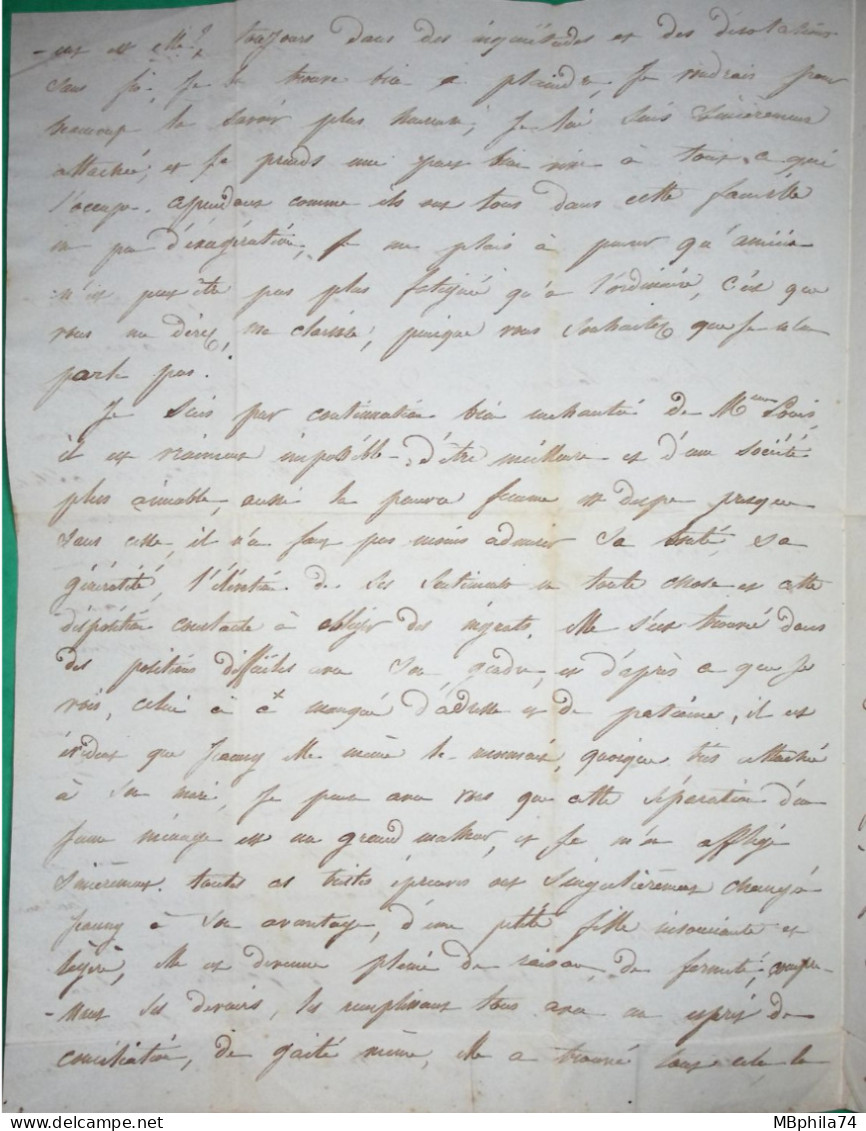 toujours dans des inquiétudes et des désolations
sans fin, je la trouve bien à plaindre, je voudrais pour
beaucoup la savoir plus heureuse, je lui suis sincèrement
attachée, et je prends une part bien vive à tout ce qui
l'occupe. cependant comme ils ont tous dans cette famille
un peu d'exagération, je me plais à penser qu'
n'est peut être pas plus fatiguée qu'à l'ordinaire, c'est que
vous me direz, ma puisque vous souhaitez que je n'en
parle pas.
Je suis par continuation bien enchantée de Mme Louis,
il est vraiment impossible d'être meilleure et d'une société
plus aimable, aussi la pauvre femme est dupe presque
sans cesse, il n'en faut pas moins admirer sa bonté, sa
générosité, l'élévation de ses sentiments en toute chose et cette
disposition constante à obliger des ingrats. Elle s'est trouvée dans
des positions difficiles avec son gendre, et d'après ce que je
vois, celui ci a manqué d'adresse et de patience, il est
évident que Fanny elle même le reconnait, quoique très attachée
à son mari, Je pense avec vous que cette séparation d'un
jeune ménage est un grand malheur, et je m'en afflige
sincèrement. toutes ces tristes épreuves ont singulièrement changé
Fanny à son avantage, d'une petite fille insouciante et
légère, elle est devenue pleine de raison, de fermeté, compre-
-nant ses devoirs, les remplissant tous avec un esprit de
conciliation, de gaité même, elle a trouvé tout cela la
MBphila74